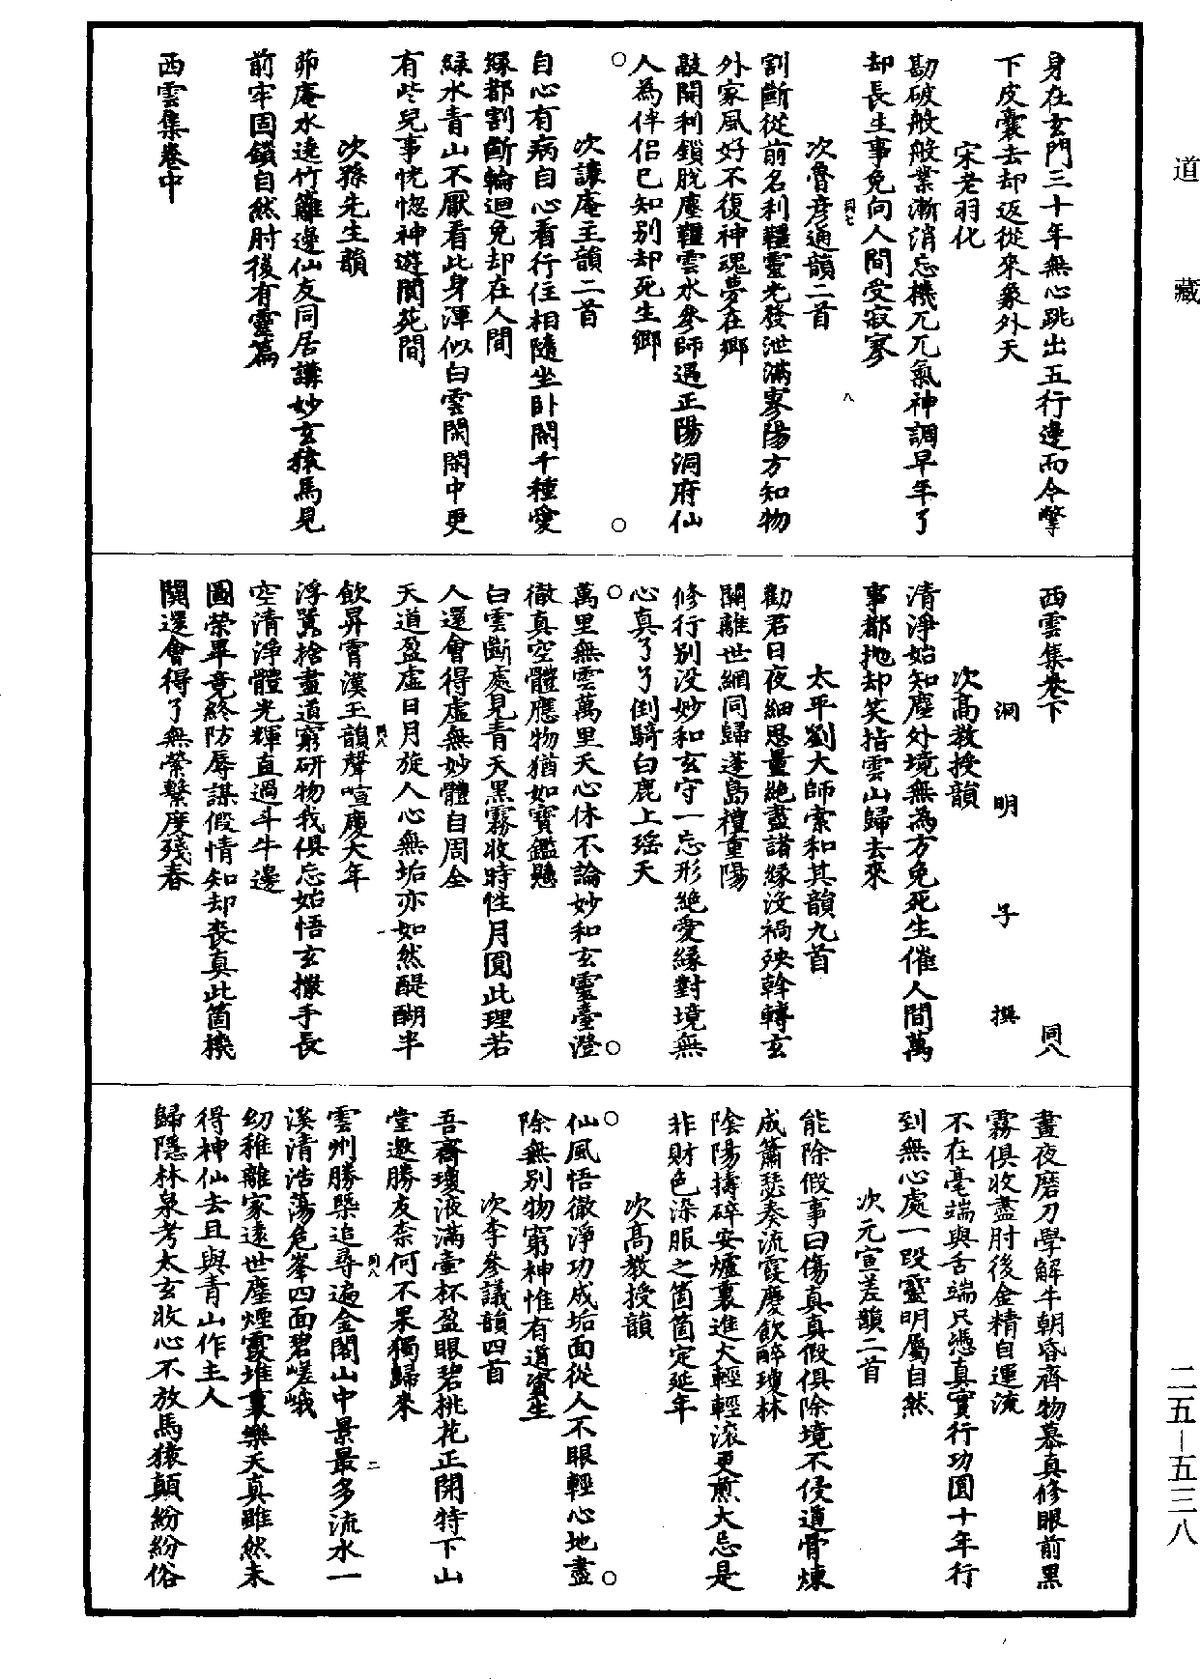 道藏
身在玄門三十年無心跳出五行邊而今撆
下皮囊去却返從來象外天
宋老羽化
勘破般般業漸消忘機兀兀氣神調早年了
却長生事免向人間受寂寥
次魯彥通韻二首
同七
八
割斷從前名利韁靈光發泄滿寥陽方知物
外家風好不復神魂夢在鄉
敲開利鎖脫塵韁雲水參師遇正陽洞府仙
人為伴侶已知別却死生鄉
○○
次讓庵主韻二首
自心有病自心看行住相隨坐卧閑千種愛
緣都割斷輪迴免却在人間
綠水青山不厭看此身渾似白雲閑閑中更
有些兒事恍惚神遊閬苑間
次孫先生韻
茆庵水遶竹籬邊仙友同居講妙玄猿馬見
前牢固鎖自然肘後有靈篇
西雲集卷中
西雲集卷下
同八
洞明子撰
次高教授韻
清淨始知塵外境無為方免死生催人間萬
事都拋却笑指雲山歸去來
太平劉大師索和其韻九首
勸君日夜細思量絕盡諸緣没禍殃斡轉玄
關離世網同歸蓬島禮重陽
修行别没妙和玄守一忘形絕愛緣對境無
心真了了倒騎白鹿上瑶天
○○
萬里無雲萬里天心休不論妙和玄靈臺澄
徹真空體應物猶如寶鑑懸
白雲斷處見青天黑霧收時性月圓此理若
人還會得虛無妙體自周全
天道盈虛日月旋人心無垢亦如然醍醐半
飲昇霄漢玉韻聲喧慶大年
同八
一
浮囂捨盡道窮研物我俱忘始悟玄撒手長
空清淨體光輝直過斗牛邊
圖榮畢竟終防辱謀假情知却喪真此箇機
關還會得了無縈繫度殘春
晝夜磨刀學解牛朝昏齊物慕真修眼前黑
霧俱收盡肘後金精自運流
不在毫端與舌端只憑真實行功圓十年行
到無心處一段靈明屬自然
次元宣差韻二首
能除假事曰傷真真假俱除境不侵道骨煉
成簫瑟奏流霞慶飲醉瓊林
陰陽擣碎安爐裏進火輕輕滚更煎大忌是
非財色染服之箇箇定延年
次高教授韻
○○
仙風悟徹淨功成垢面從人不眼輕心地盡
除無别物窮神惟有道資生
次李參議韻四首
吾齋瓊液滿壷杯盈眼碧桃花正開特下山
堂邀勝友柰何不果獨歸來
同八
二
雲州勝槩追尋遍金閣山中景最多流水一
溪清浩蕩危峯四面碧嵯峨
幼稚離家遠世塵煙霞堆裏樂天真雖然未
得神仙去且與青山作主人
歸隱林泉考太玄收心不放馬猿顛紛紛俗
二五－五三八